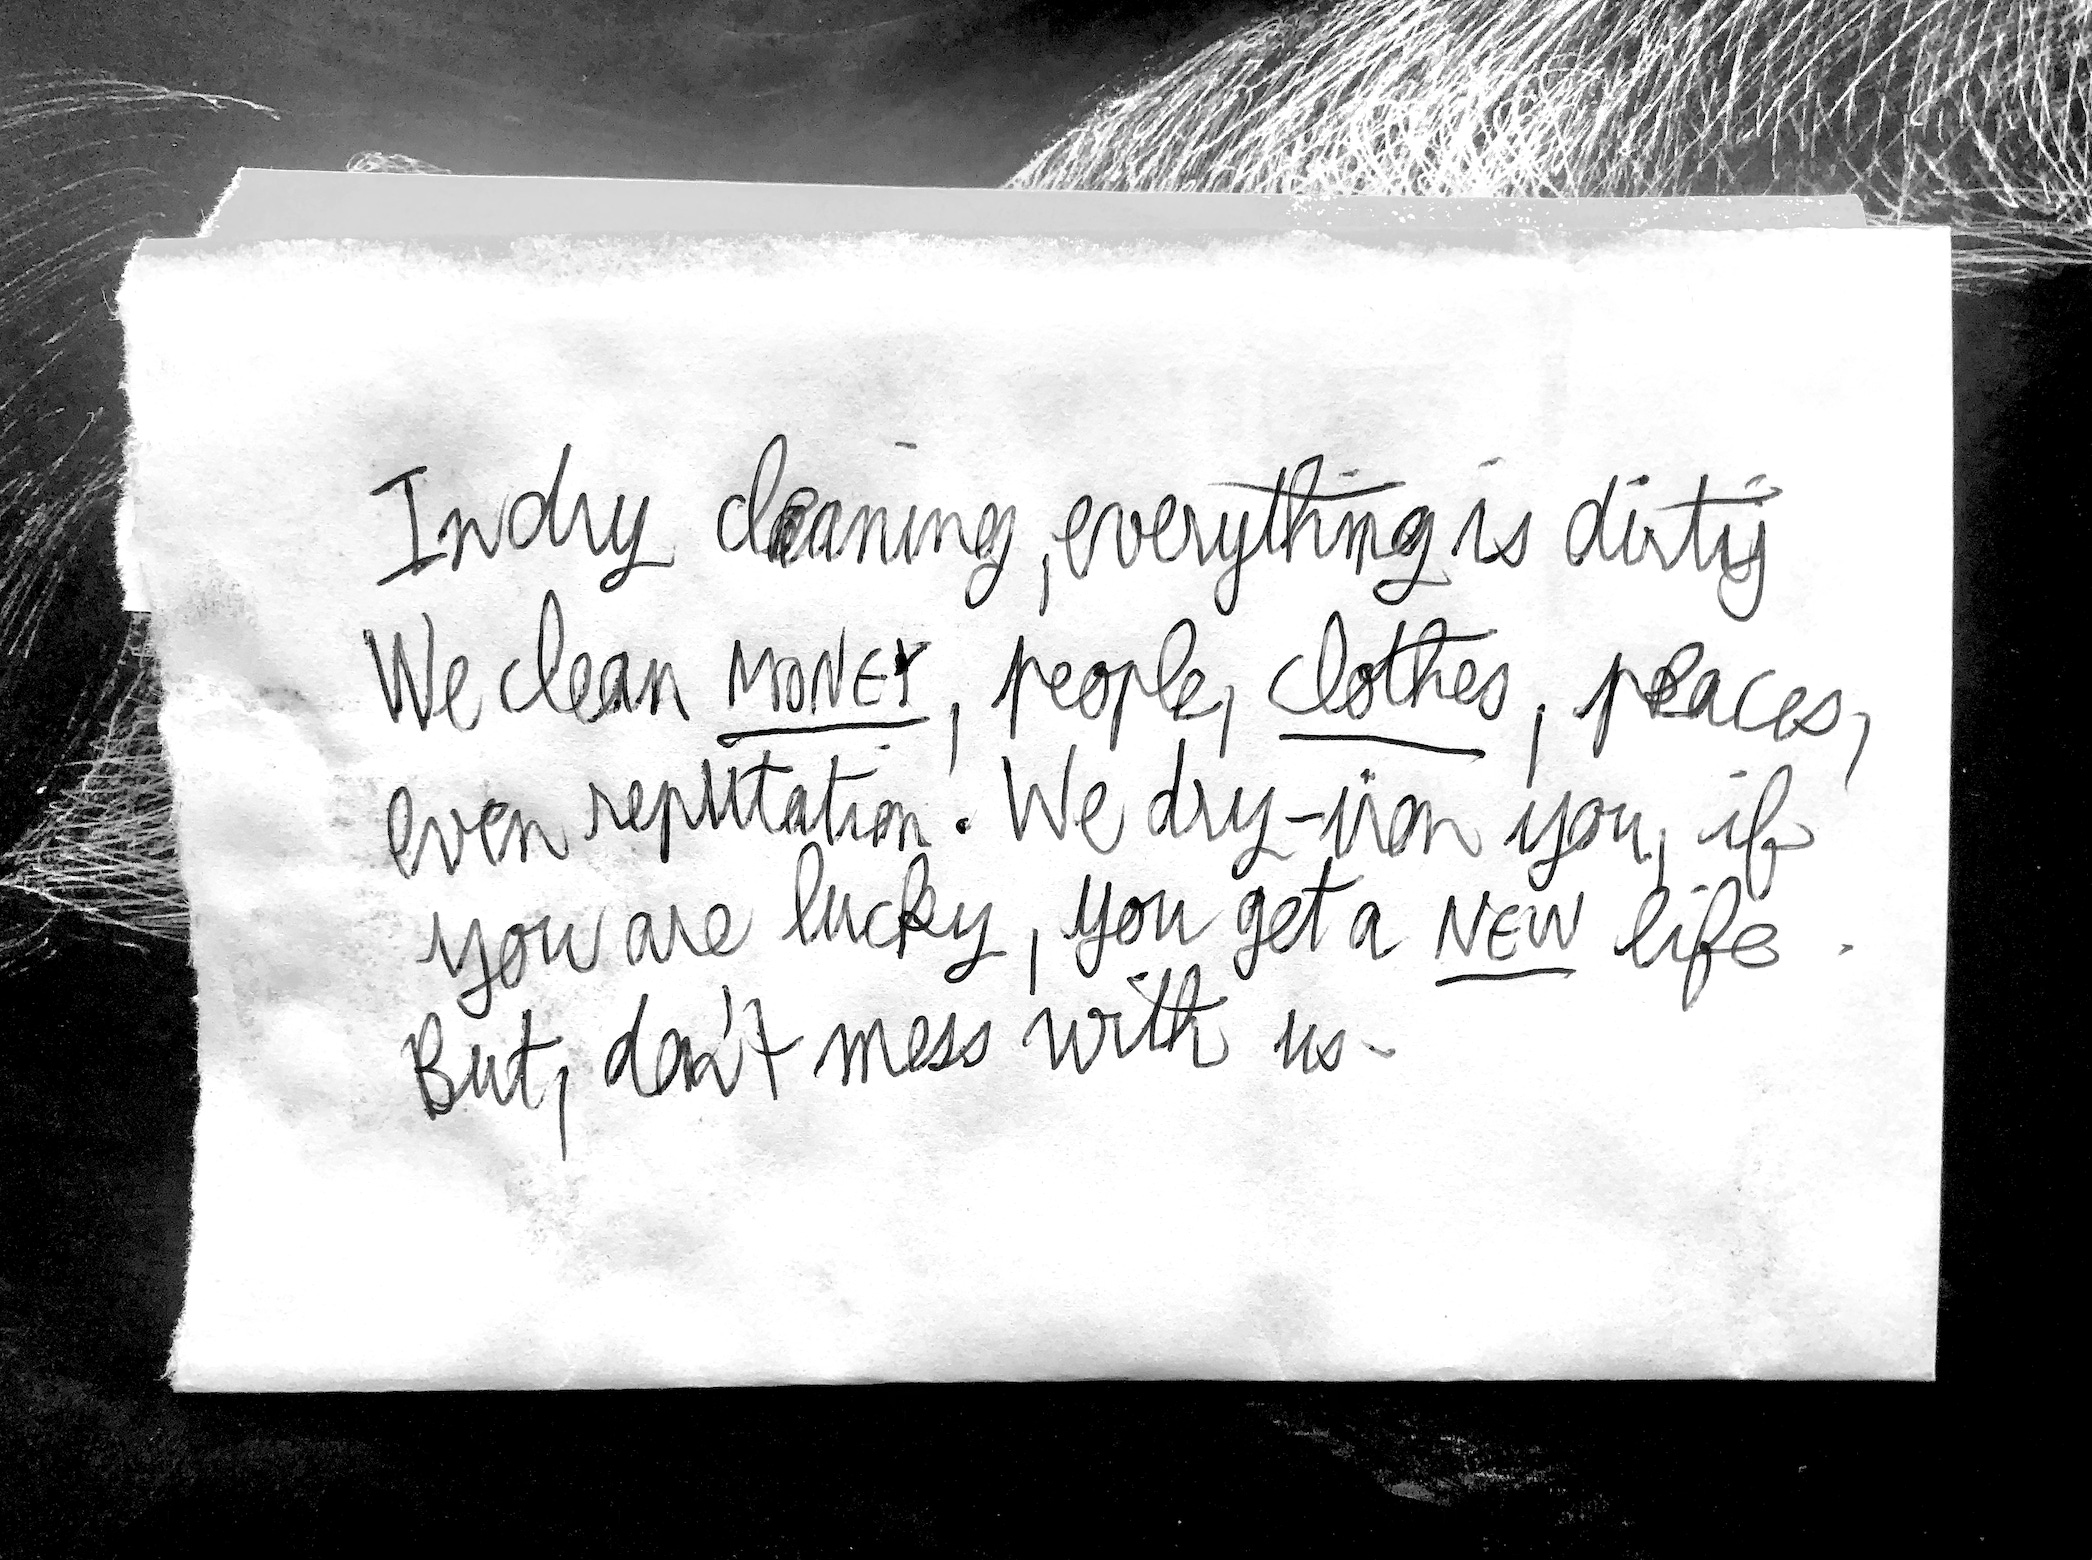 In dry cleaning, everything is dirty
We clean MONEY, people, clothes, places,
even reputation. We dry-iron you, if
you are lucky, you get a NEW life.
But, don't mess with us-